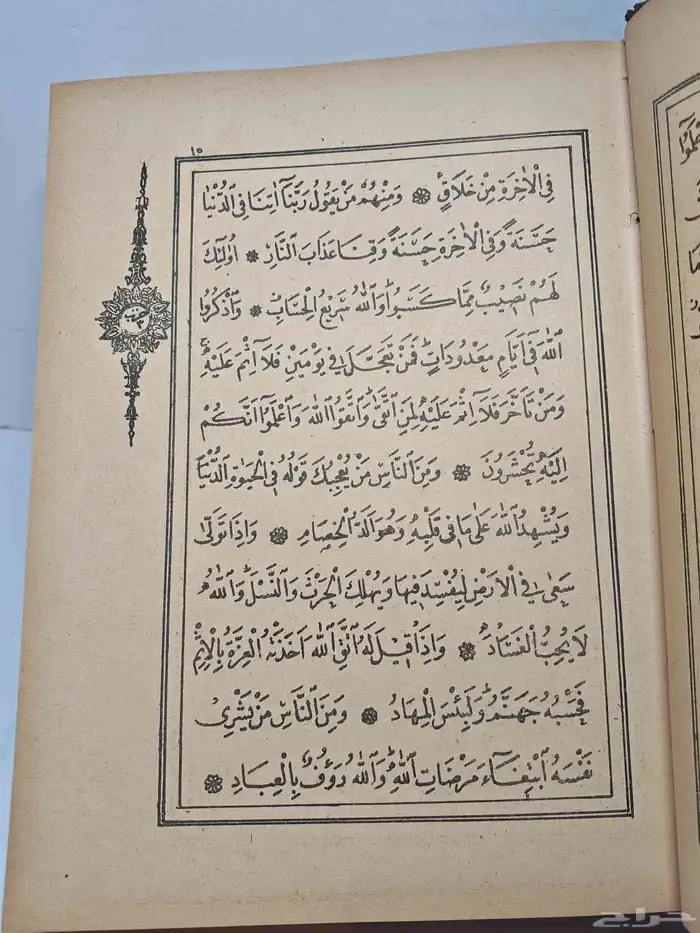 ١٥
فِى الْاٰخِرَةِ مِنْ خَلَاقٍ ❁ وَمِنْهُمْ مَنْ يَقُولُ رَبَّنَٓا اٰتِنَا فِى الدُّنْيَا
حَسَنَةً وَفِى الْاٰخِرَةِ حَسَنَةً وَقِنَا عَذَابَ النَّارِ ❁ اُو۬لٰٓئِكَ
لَهُمْ نَصِيبٌ مِمَّا كَسَبُوا وَاللّٰهُ سَرِيعُ الْحِسَابِ ❁ وَاذْكُرُوا
اللّٰهَ فِٓى اَيَّامٍ مَعْدُودَاتٍ فَمَنْ تَعَجَّلَ فِى يَوْمَيْنِ فَلَٓا اِثْمَ عَلَيْهِ
وَمَنْ تَاَخَّرَ فَلَٓا اِثْمَ عَلَيْهِ لِمَنِ اتَّقٰى وَاتَّقُوا اللّٰهَ وَاعْلَمُٓوا اَنَّكُمْ
اِلَيْهِ تُحْشَرُونَ ❁ وَمِنَ النَّاسِ مَنْ يُعْجِبُكَ قَوْلُهُ فِى الْحَيٰوةِ الدُّنْيَا
وَيُشْهِدُ اللّٰهَ عَلٰى مَا فِى قَلْبِهِ وَهُوَ اَلَدُّ الْخِصَامِ ❁ وَاِذَا تَوَلّٰى
سَعٰى فِى الْاَرْضِ لِيُفْسِدَ فِيهَا وَيُهْلِكَ الْحَرْثَ وَالنَّسْلَ وَاللّٰهُ
لَا يُحِبُّ الْفَسَادَ ❁ وَاِذَا قِيلَ لَهُ اتَّقِ اللّٰهَ اَخَذَتْهُ الْعِزَّةُ بِالْاِثْمِ
فَحَسْبُهُ جَهَنَّمُ وَلَبِئْسَ الْمِهَادُ ❁ وَمِنَ النَّاسِ مَنْ يَشْرِى
نَفْسَهُ ابْتِغَٓاءَ مَرْضَاتِ اللّٰهِ وَاللّٰهُ رَؤُفٌ بِالْعِبَادِ ❁
حزب
حراج